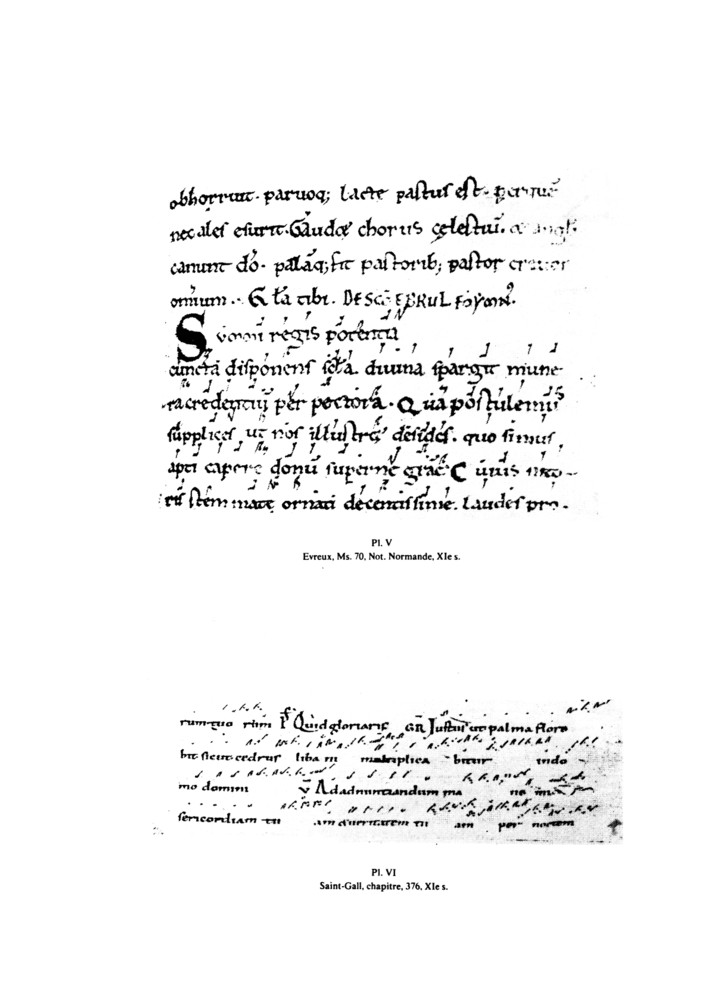 obhorruit. paruoq; lacte pastus est. per quē
nec ales esurit. Gaudet chorus celestiū. &
canunt dō. palāq; fit pastorib; pastor creator
omium. Gła tibi. DE SCO EBRULFO YMN.
Summi regis potentia
cuncta disponens scła. divina spargit mune
ra credentiū per pectora. Quā postulemus
supplices ut nos illustret desides. quo simus
apti capere donū superne grae C uius
stemmate ornati decentissime. laudes pro.
Pl. V
Evreux, Ms. 70, Not. Normande, XIe s.
rum tuo rum Ps Quid gloriaris GR Justus ut palma flore
bit sicut cedrus liba ni multiplica bitur indo
mo domini V Adadnuntiandum ma ne
sericordiam tu am & ueritatem tu am per noctem
Pl. VI
Saint-Gall, chapitre, 376, XIe s.